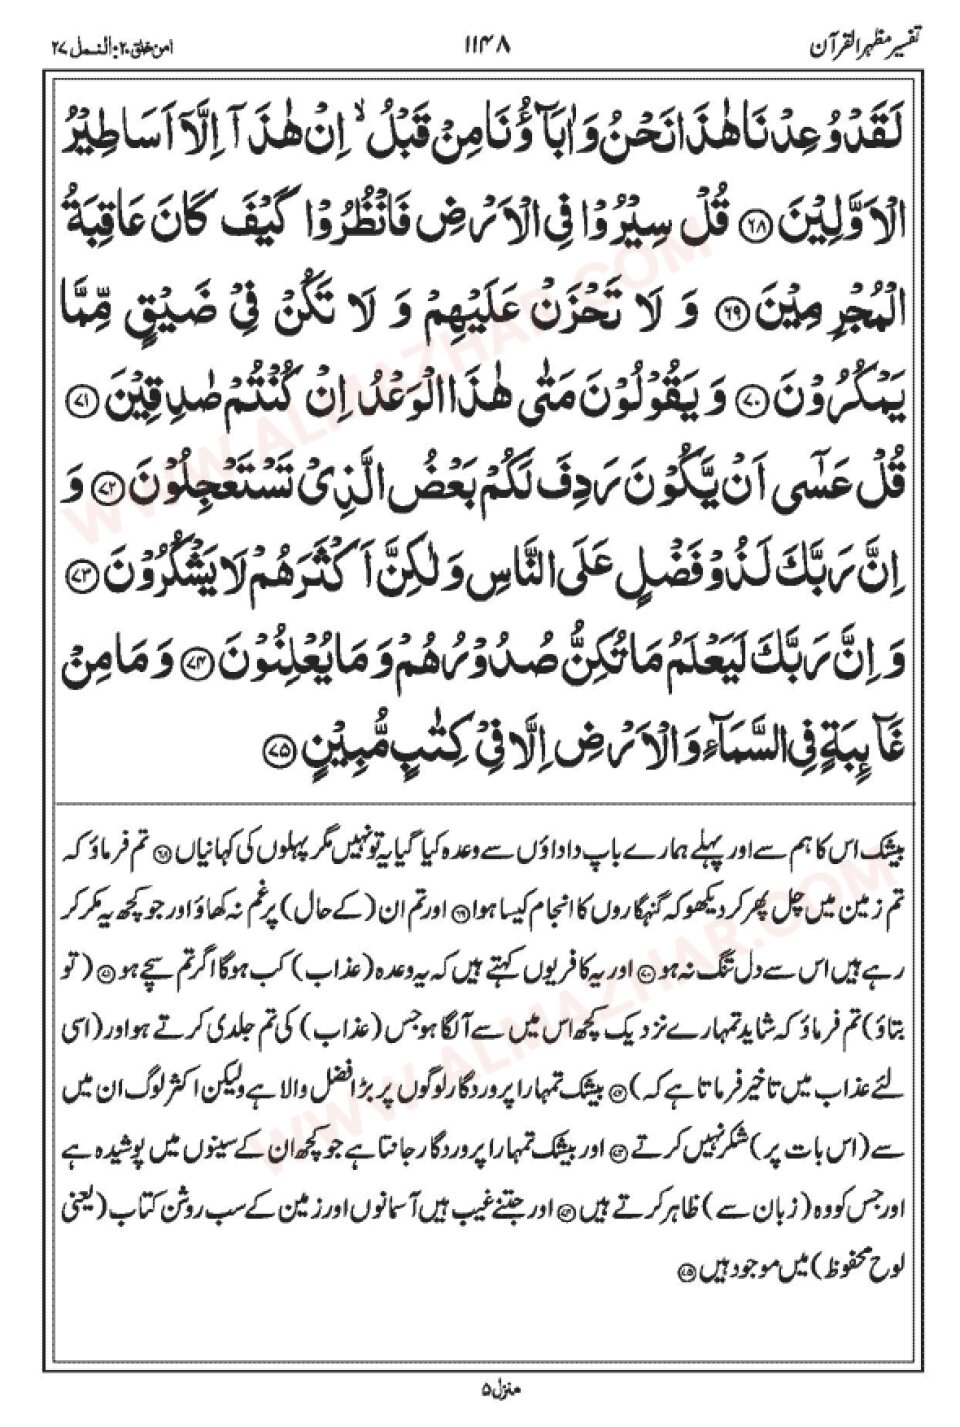 تفسیر مظہر القرآن
۱۱۴۸
امن خلق ۲۰: النمل ۲۷
لَقَدْ وُعِدْنَا هٰذَا نَحْنُ وَ اٰبَآؤُنَا مِنْ قَبْلُ ۙ اِنْ هٰذَآ اِلَّآ اَسَاطِیْرُ
الْاَوَّلِیْنَ ﴿۶۸﴾ قُلْ سِیْرُوْا فِی الْاَرْضِ فَانْظُرُوْا کَیْفَ کَانَ عَاقِبَةُ
الْمُجْرِمِیْنَ ﴿۶۹﴾ وَ لَا تَحْزَنْ عَلَیْهِمْ وَ لَا تَکُنْ فِیْ ضَیْقٍ مِّمَّا
یَمْکُرُوْنَ ﴿۷۰﴾ وَ یَقُوْلُوْنَ مَتٰی هٰذَا الْوَعْدُ اِنْ کُنْتُمْ صٰدِقِیْنَ ﴿۷۱﴾
قُلْ عَسٰۤی اَنْ یَّکُوْنَ رَدِفَ لَکُمْ بَعْضُ الَّذِیْ تَسْتَعْجِلُوْنَ ﴿۷۲﴾ وَ
اِنَّ رَبَّکَ لَذُوْ فَضْلٍ عَلَی النَّاسِ وَلٰکِنَّ اَکْثَرَهُمْ لَا یَشْکُرُوْنَ ﴿۷۳﴾
وَ اِنَّ رَبَّکَ لَیَعْلَمُ مَا تُکِنُّ صُدُوْرُهُمْ وَ مَا یُعْلِنُوْنَ ﴿۷۴﴾ وَ مَا مِنْ
غَآئِبَةٍ فِی السَّمَآءِ وَ الْاَرْضِ اِلَّا فِیْ کِتٰبٍ مُّبِیْنٍ ﴿۷۵﴾
بیشک اس کا ہم سے اور پہلے ہمارے باپ داداؤں سے وعدہ کیا گیا یہ تو نہیں مگر پہلوں کی کہانیاں ﴿۶۸﴾ تم فرماؤ کہ
تم زمین میں چل پھر کر دیکھو کہ گنہگاروں کا انجام کیسا ہوا ﴿۶۹﴾ اور تم ان (کے حال) پر غم نہ کھاؤ اور جو کچھ یہ مکر کر
رہے ہیں اس سے دل تنگ نہ ہو ﴿۷۰﴾ اور یہ کافر یوں کہتے ہیں کہ یہ وعدہ (عذاب) کب ہوگا اگر تم سچے ہو ﴿۷۱﴾ (تو
بتاؤ) تم فرماؤ کہ شاید تمہارے نزدیک کچھ اس میں سے آلگا ہو جس (عذاب) کی تم جلدی کرتے ہو اور (اسی
لئے عذاب میں تاخیر فرماتا ہے کہ) ﴿۷۲﴾ بیشک تمہارا پروردگار لوگوں پر بڑا فضل والا ہے ولیکن اکثر لوگ ان میں
سے (اس بات پر) شکر نہیں کرتے ﴿۷۳﴾ اور بیشک تمہارا پروردگار جانتا ہے جو کچھ ان کے سینوں میں پوشیدہ ہے
اور جس کو وہ (زبان سے) ظاہر کرتے ہیں ﴿۷۴﴾ اور جتنے غیب ہیں آسمانوں اور زمین کے سب روشن کتاب (یعنی
لوح محفوظ) میں موجود ہیں ﴿۷۵﴾
منزل ۵
WWW.ALMAZHAR.COM
WWW.ALMAZHAR.COM